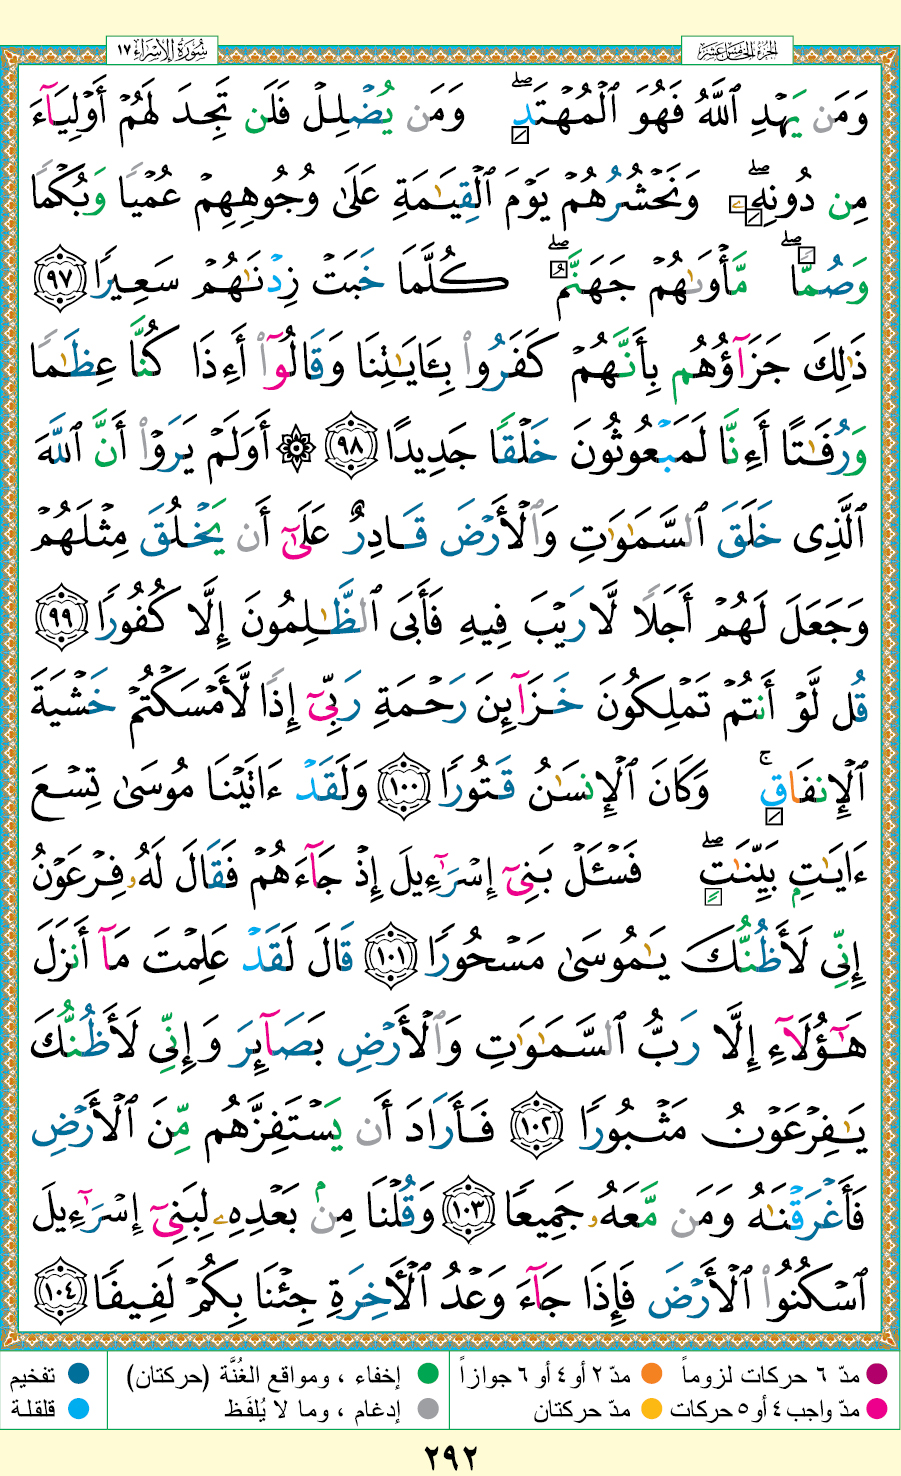 سُورَةُ الإِسْرَاء ١٧
الجُزءُ الخَامِسَ عَشَرَ
وَمَن يَهْدِ ٱللَّهُ فَهُوَ ٱلْمُهْتَدِ ۖ وَمَن يُضْلِلْ فَلَن تَجِدَ لَهُمْ أَوْلِيَآءَ
مِن دُونِهِۦ ۖ وَنَحْشُرُهُمْ يَوْمَ ٱلْقِيَـٰمَةِ عَلَىٰ وُجُوهِهِمْ عُمْيًا وَبُكْمًا
وَصُمًّا ۖ مَّأْوَىٰهُمْ جَهَنَّمُ ۖ كُلَّمَا خَبَتْ زِدْنَـٰهُمْ سَعِيرًا ٩٧
ذَٰلِكَ جَزَآؤُهُم بِأَنَّهُمْ كَفَرُوا۟ بِـَٔايَـٰتِنَا وَقَالُوٓا۟ أَءِذَا كُنَّا عِظَـٰمًا
وَرُفَـٰتًا أَءِنَّا لَمَبْعُوثُونَ خَلْقًا جَدِيدًا ٩٨ ۞ أَوَلَمْ يَرَوْا۟ أَنَّ ٱللَّهَ
ٱلَّذِى خَلَقَ ٱلسَّمَـٰوَٰتِ وَٱلْأَرْضَ قَادِرٌ عَلَىٰٓ أَن يَخْلُقَ مِثْلَهُمْ
وَجَعَلَ لَهُمْ أَجَلًا لَّا رَيْبَ فِيهِ فَأَبَى ٱلظَّـٰلِمُونَ إِلَّا كُفُورًا ٩٩
قُل لَّوْ أَنتُمْ تَمْلِكُونَ خَزَآئِنَ رَحْمَةِ رَبِّىٓ إِذًا لَّأَمْسَكْتُمْ خَشْيَةَ
ٱلْإِنفَاقِ ۚ وَكَانَ ٱلْإِنسَـٰنُ قَتُورًا ١٠٠ وَلَقَدْ ءَاتَيْنَا مُوسَىٰ تِسْعَ
ءَايَـٰتٍۭ بَيِّنَـٰتٍ ۖ فَسْـَٔلْ بَنِىٓ إِسْرَٰٓءِيلَ إِذْ جَآءَهُمْ فَقَالَ لَهُۥ فِرْعَوْنُ
إِنِّى لَأَظُنُّكَ يَـٰمُوسَىٰ مَسْحُورًا ١٠١ قَالَ لَقَدْ عَلِمْتَ مَآ أَنزَلَ
هَـٰٓؤُلَآءِ إِلَّا رَبُّ ٱلسَّمَـٰوَٰتِ وَٱلْأَرْضِ بَصَآئِرَ وَإِنِّى لَأَظُنُّكَ
يَـٰفِرْعَوْنُ مَثْبُورًا ١٠٢ فَأَرَادَ أَن يَسْتَفِزَّهُم مِّنَ ٱلْأَرْضِ
فَأَغْرَقْنَـٰهُ وَمَن مَّعَهُۥ جَمِيعًا ١٠٣ وَقُلْنَا مِنۢ بَعْدِهِۦ لِبَنِىٓ إِسْرَٰٓءِيلَ
ٱسْكُنُوا۟ ٱلْأَرْضَ فَإِذَا جَآءَ وَعْدُ ٱلْـَٔاخِرَةِ جِئْنَا بِكُمْ لَفِيفًا ١٠٤
مدّ ٦ حركات لزوماً مدّ ٢ أو ٤ أو ٦ جوازاً إخفاء ، ومواقع الغُنَّة (حركتان) تفخيم
مدّ واجب ٤ أو ٥ حركات مدّ حركتان إدغام ، وما لا يُلفَظ قلقلة
٢٩٢